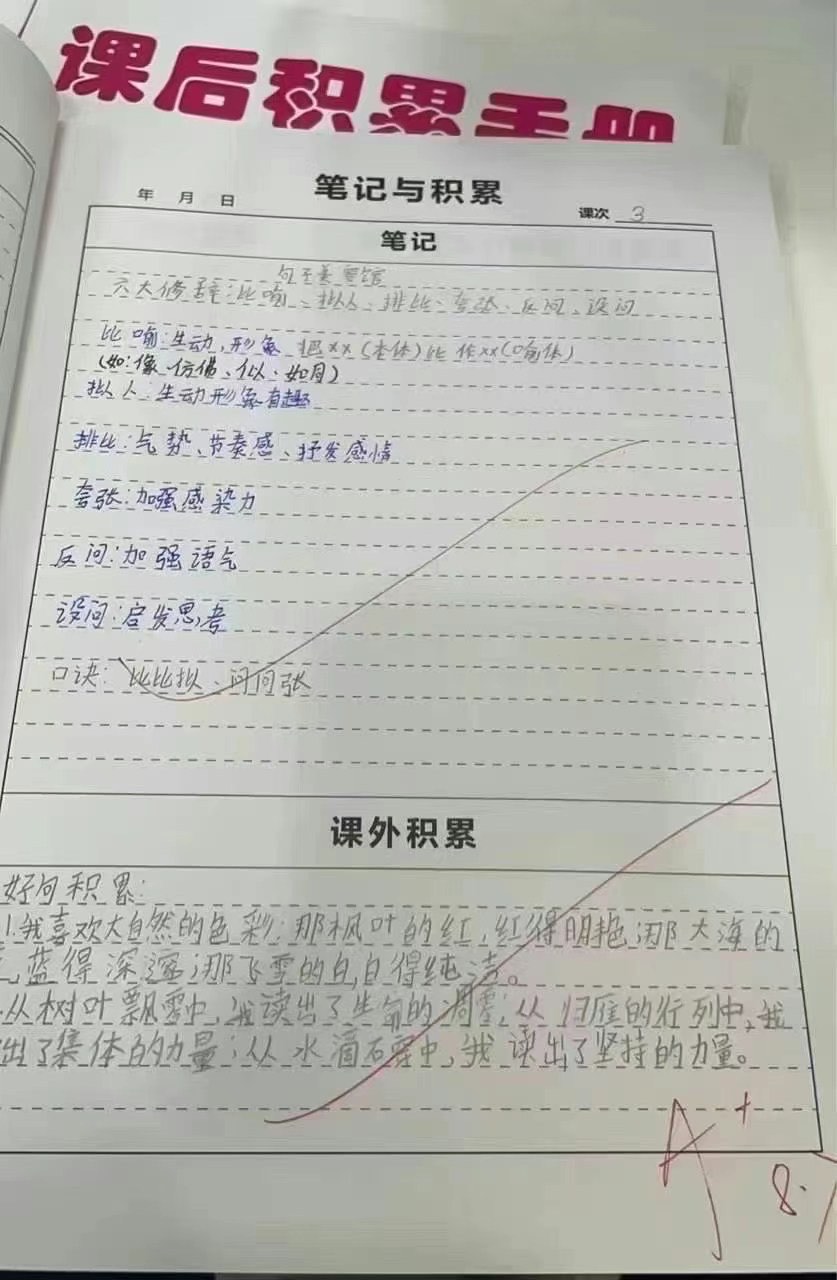 课后积累手册
笔记与积累
年 月 日
课次 3
笔记
句王美容馆
六大修辞:比喻、拟人、排比、夸张、反问、设问
比喻:生动,形象 把xx(本体)比作xx(喻体)
(如:像、仿佛、似、如同)
拟人:生动形象有趣
排比:气势、节奏感、抒发感情
夸张:加强感染力
反问:加强语气
设问:启发思考
口诀:比比拟、问问张
课外积累
好句积累:
1.我喜欢大自然的色彩:那枫叶的红,红得明艳;那大海的
,蓝得深邃;那飞雪的白,白得纯洁。
.从树叶飘零中,我读出了生命的凋零;从归雁的行列中,我
出了集体的力量;从水滴石穿中,我读出了坚持的力量。
A+
8.